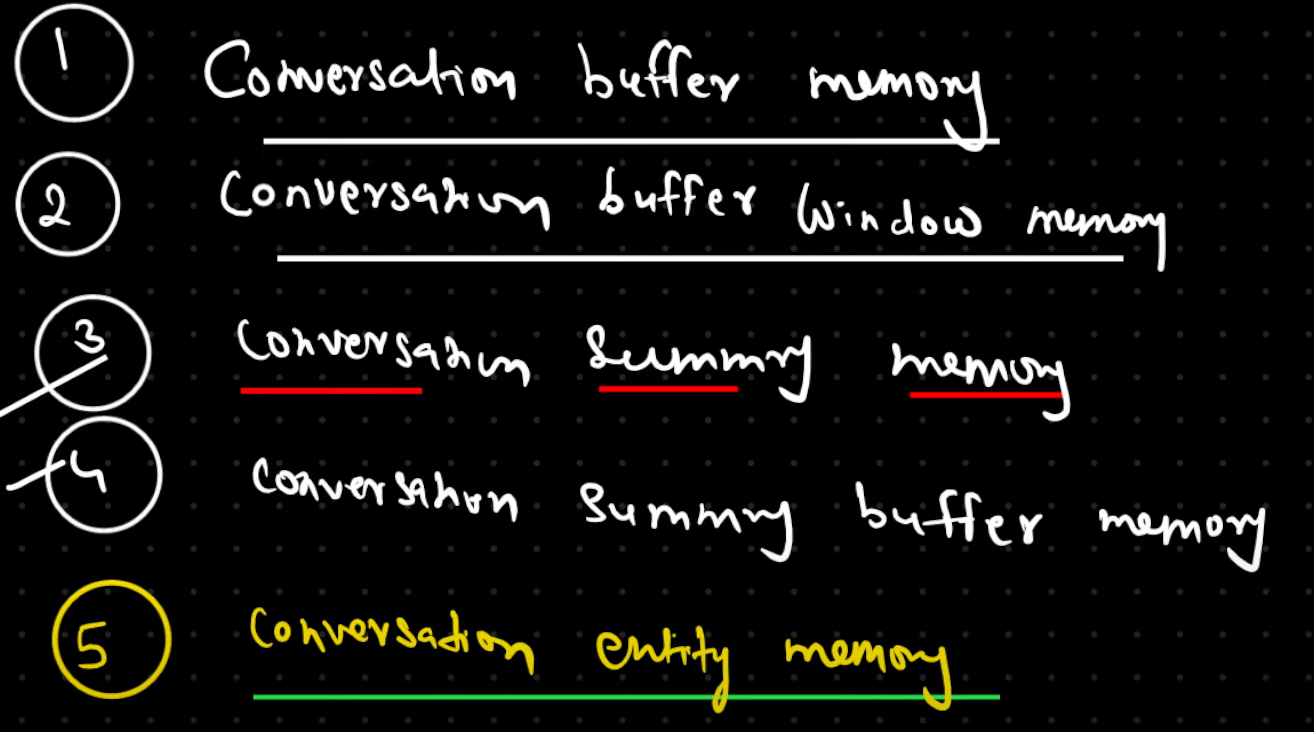 1 Conversation buffer memory
2 Conversation buffer Window memory
3 Conversation Summry memory
4 Conversation Summry buffer memory
5 Conversation entity memory